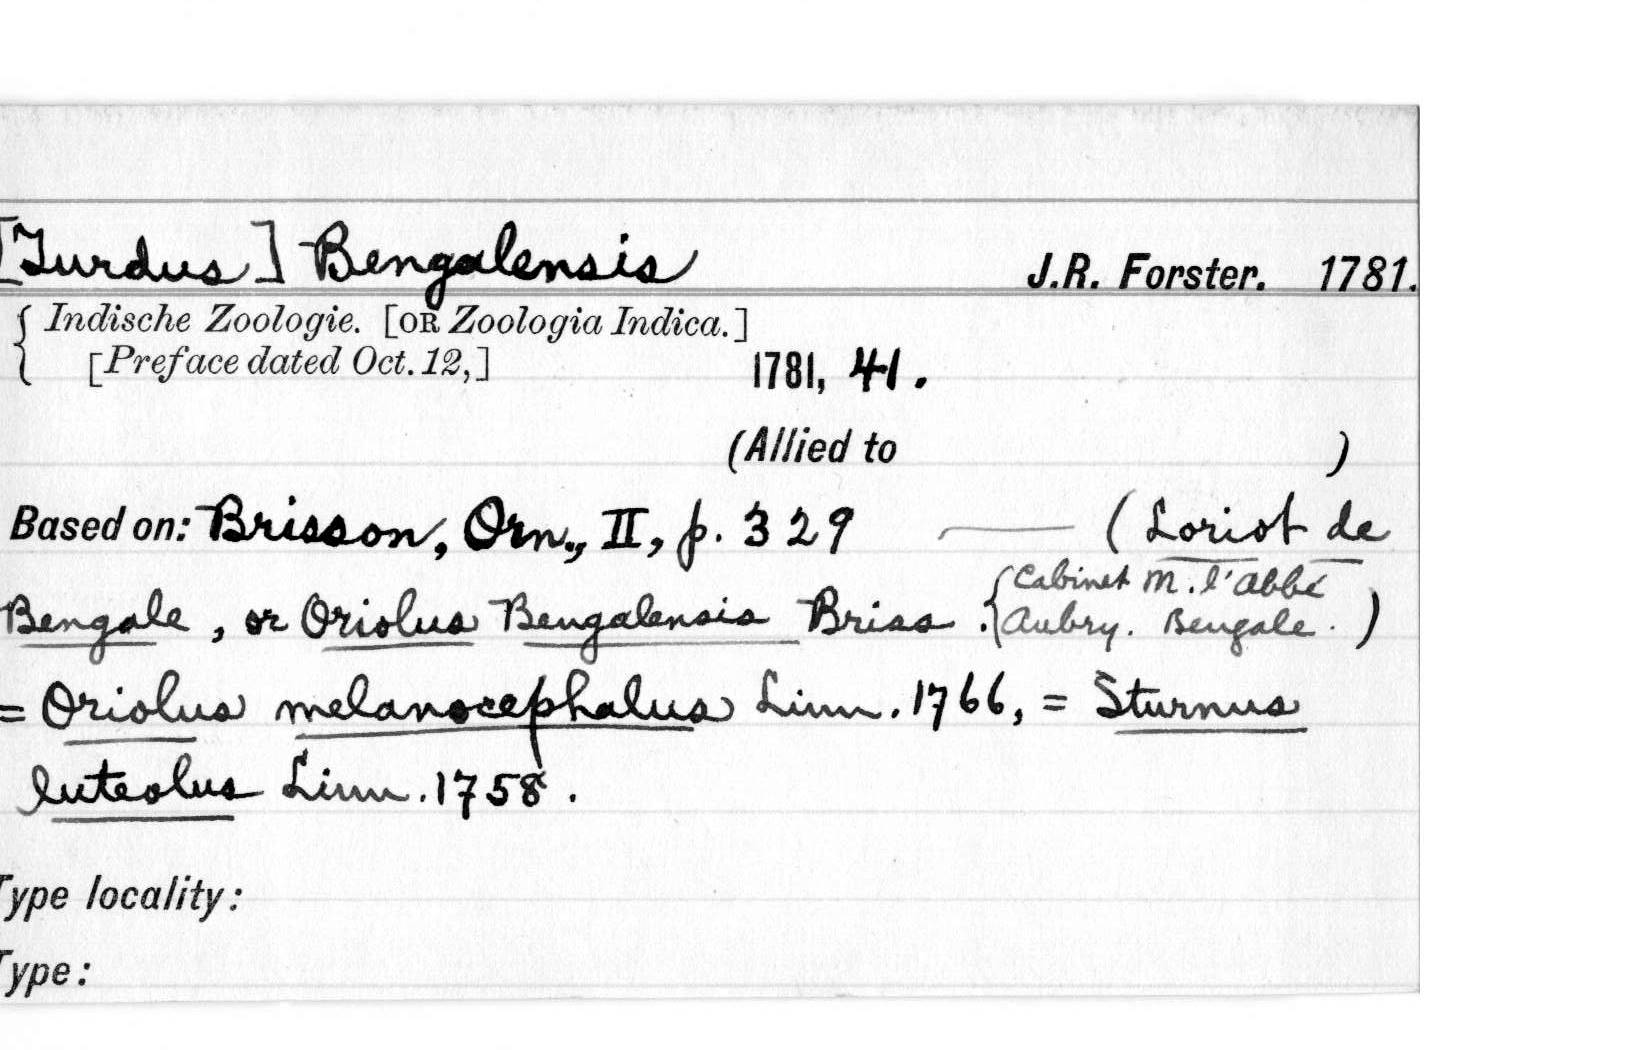 [Turdus] Bengalensis J.R. Forster. 1781.
{ Indische Zoologie. [OR Zoologia Indica.]
[Preface dated Oct. 12,] 1781, 41.
(Allied to )
Based on: Brisson, Orn., II, p. 329 — (Loriot de
Bengale, or Oriolus Bengalensis Briss. {Cabinet M. l'Abbé
Aubry. Bengale. )
= Oriolus melanocephalus Linn. 1766, = Sturnus
luteolus Linn. 1758.
Type locality:
Type: